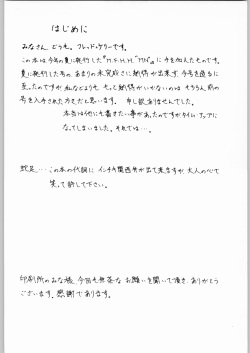 はじめに
みなさん、どうも。フレッド・ケリーです。
この本は今年の夏に発行した「M.F.H.H
に手を加えたものです。
夏に発行した号の、あまりの未完成さに納得が出来ず、今号を
ったのですが 私などよりも、もっと納得がいかないのは もちろん前の
号を入手された方だと思います。 申し訳ありませんでした。
本当は他にも書きたい事があったのですがタイム・アップに
なってしまいました。それでは…。
蛇足…この本の代詞に インチキ関西弁が出て来ますが 大人の心で
笑って許して下さい。
印刷所のみな様、今回も無茶な お願いを聞いて頂き、ありがとう
ございます。感謝であります。